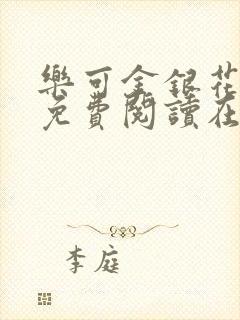 樂可金銀花
免費閱讀在
李庭